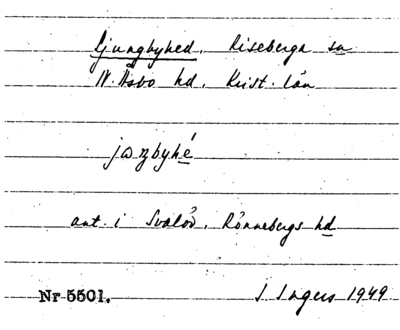 Ljungbyhed, Riseberga sn
N. Åsbo hd, Krist. län
jɷŋbyhé
ant. i Svalöv, Rönnebergs hd
Nr 5501. I Ingers 1949